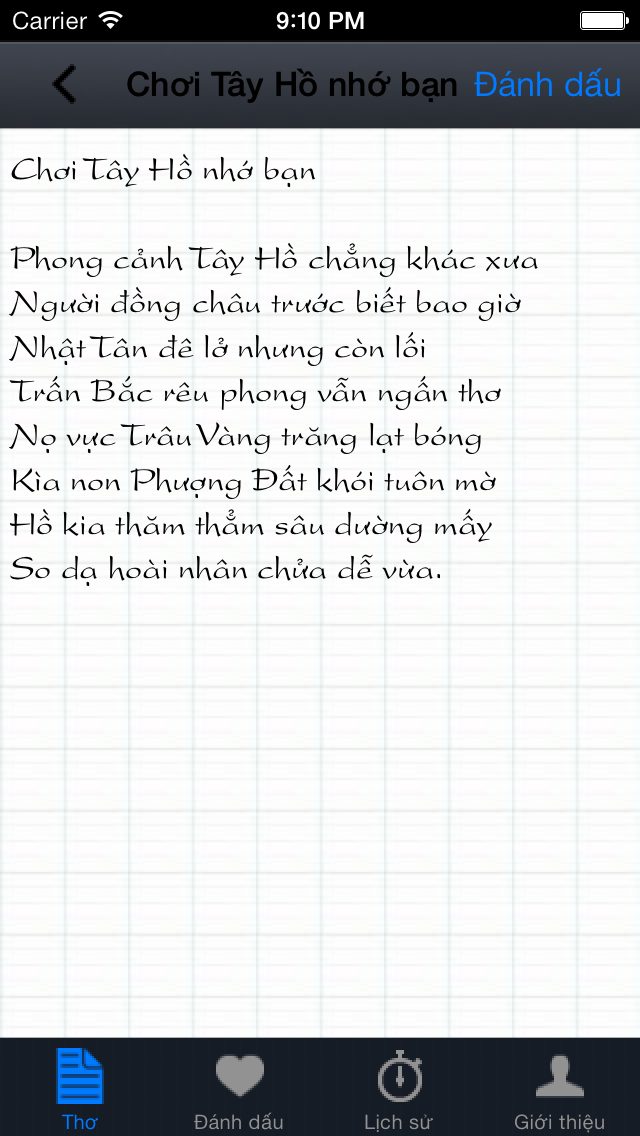 Carrier 9:10 PM
Chơi Tây Hồ nhớ bạn Đánh dấu
Chơi Tây Hồ nhớ bạn
Phong cảnh Tây Hồ chẳng khác xưa
Người đồng châu trước biết bao giờ
Nhật Tân đê lở nhưng còn lối
Trấn Bắc rêu phong vẫn ngấn thơ
Nọ vực Trâu Vàng trăng lạt bóng
Kìa non Phượng Đất khói tuôn mờ
Hồ kia thăm thẳm sâu dường mấy
So dạ hoài nhân chửa dễ vừa.
Thơ Đánh dấu Lịch sử Giới thiệu